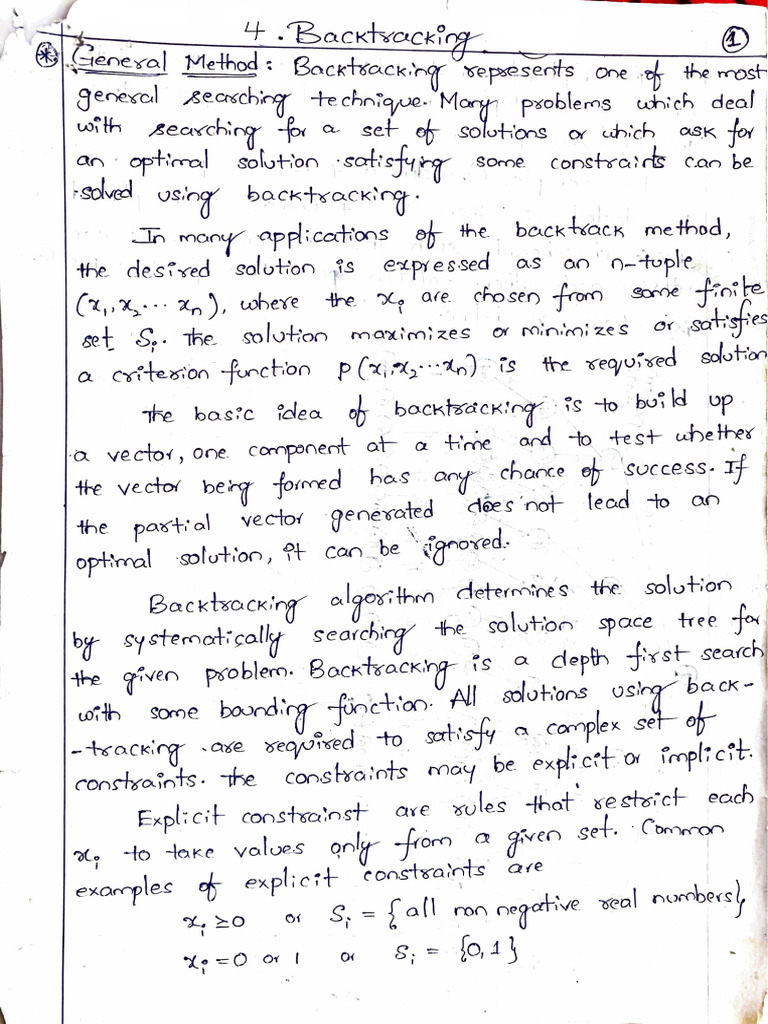 4. Backtracking 1
* General Method: Backtracking represents one of the most
general searching technique. Many problems which deal
with searching for a set of solutions or which ask for
an optimal solution satisfying some constraints can be
solved using backtracking.
In many applications of the backtrack method,
the desired solution is expressed as an n-tuple
(x₁, x₂ ... xₙ), where the xᵢ are chosen from some finite
set Sᵢ. The solution maximizes or minimizes or satisfies
a criterion function p(x₁, x₂ ... xₙ) is the required solution
The basic idea of backtracking is to build up
a vector, one component at a time and to test whether
the vector being formed has any chance of success. If
the partial vector generated does not lead to an
optimal solution, it can be ignored.
Backtracking algorithm determines the solution
by systematically searching the solution space tree for
the given problem. Backtracking is a depth first search
with some bounding function. All solutions using back-
-tracking are required to satisfy a complex set of
constraints. The constraints may be explicit or implicit.
Explicit constrainst are rules that restrict each
xᵢ to take values only from a given set. Common
examples of explicit constraints are
xᵢ ≥ 0 or Sᵢ = {all non negative real numbers}
xᵢ = 0 or 1 or Sᵢ = {0, 1}